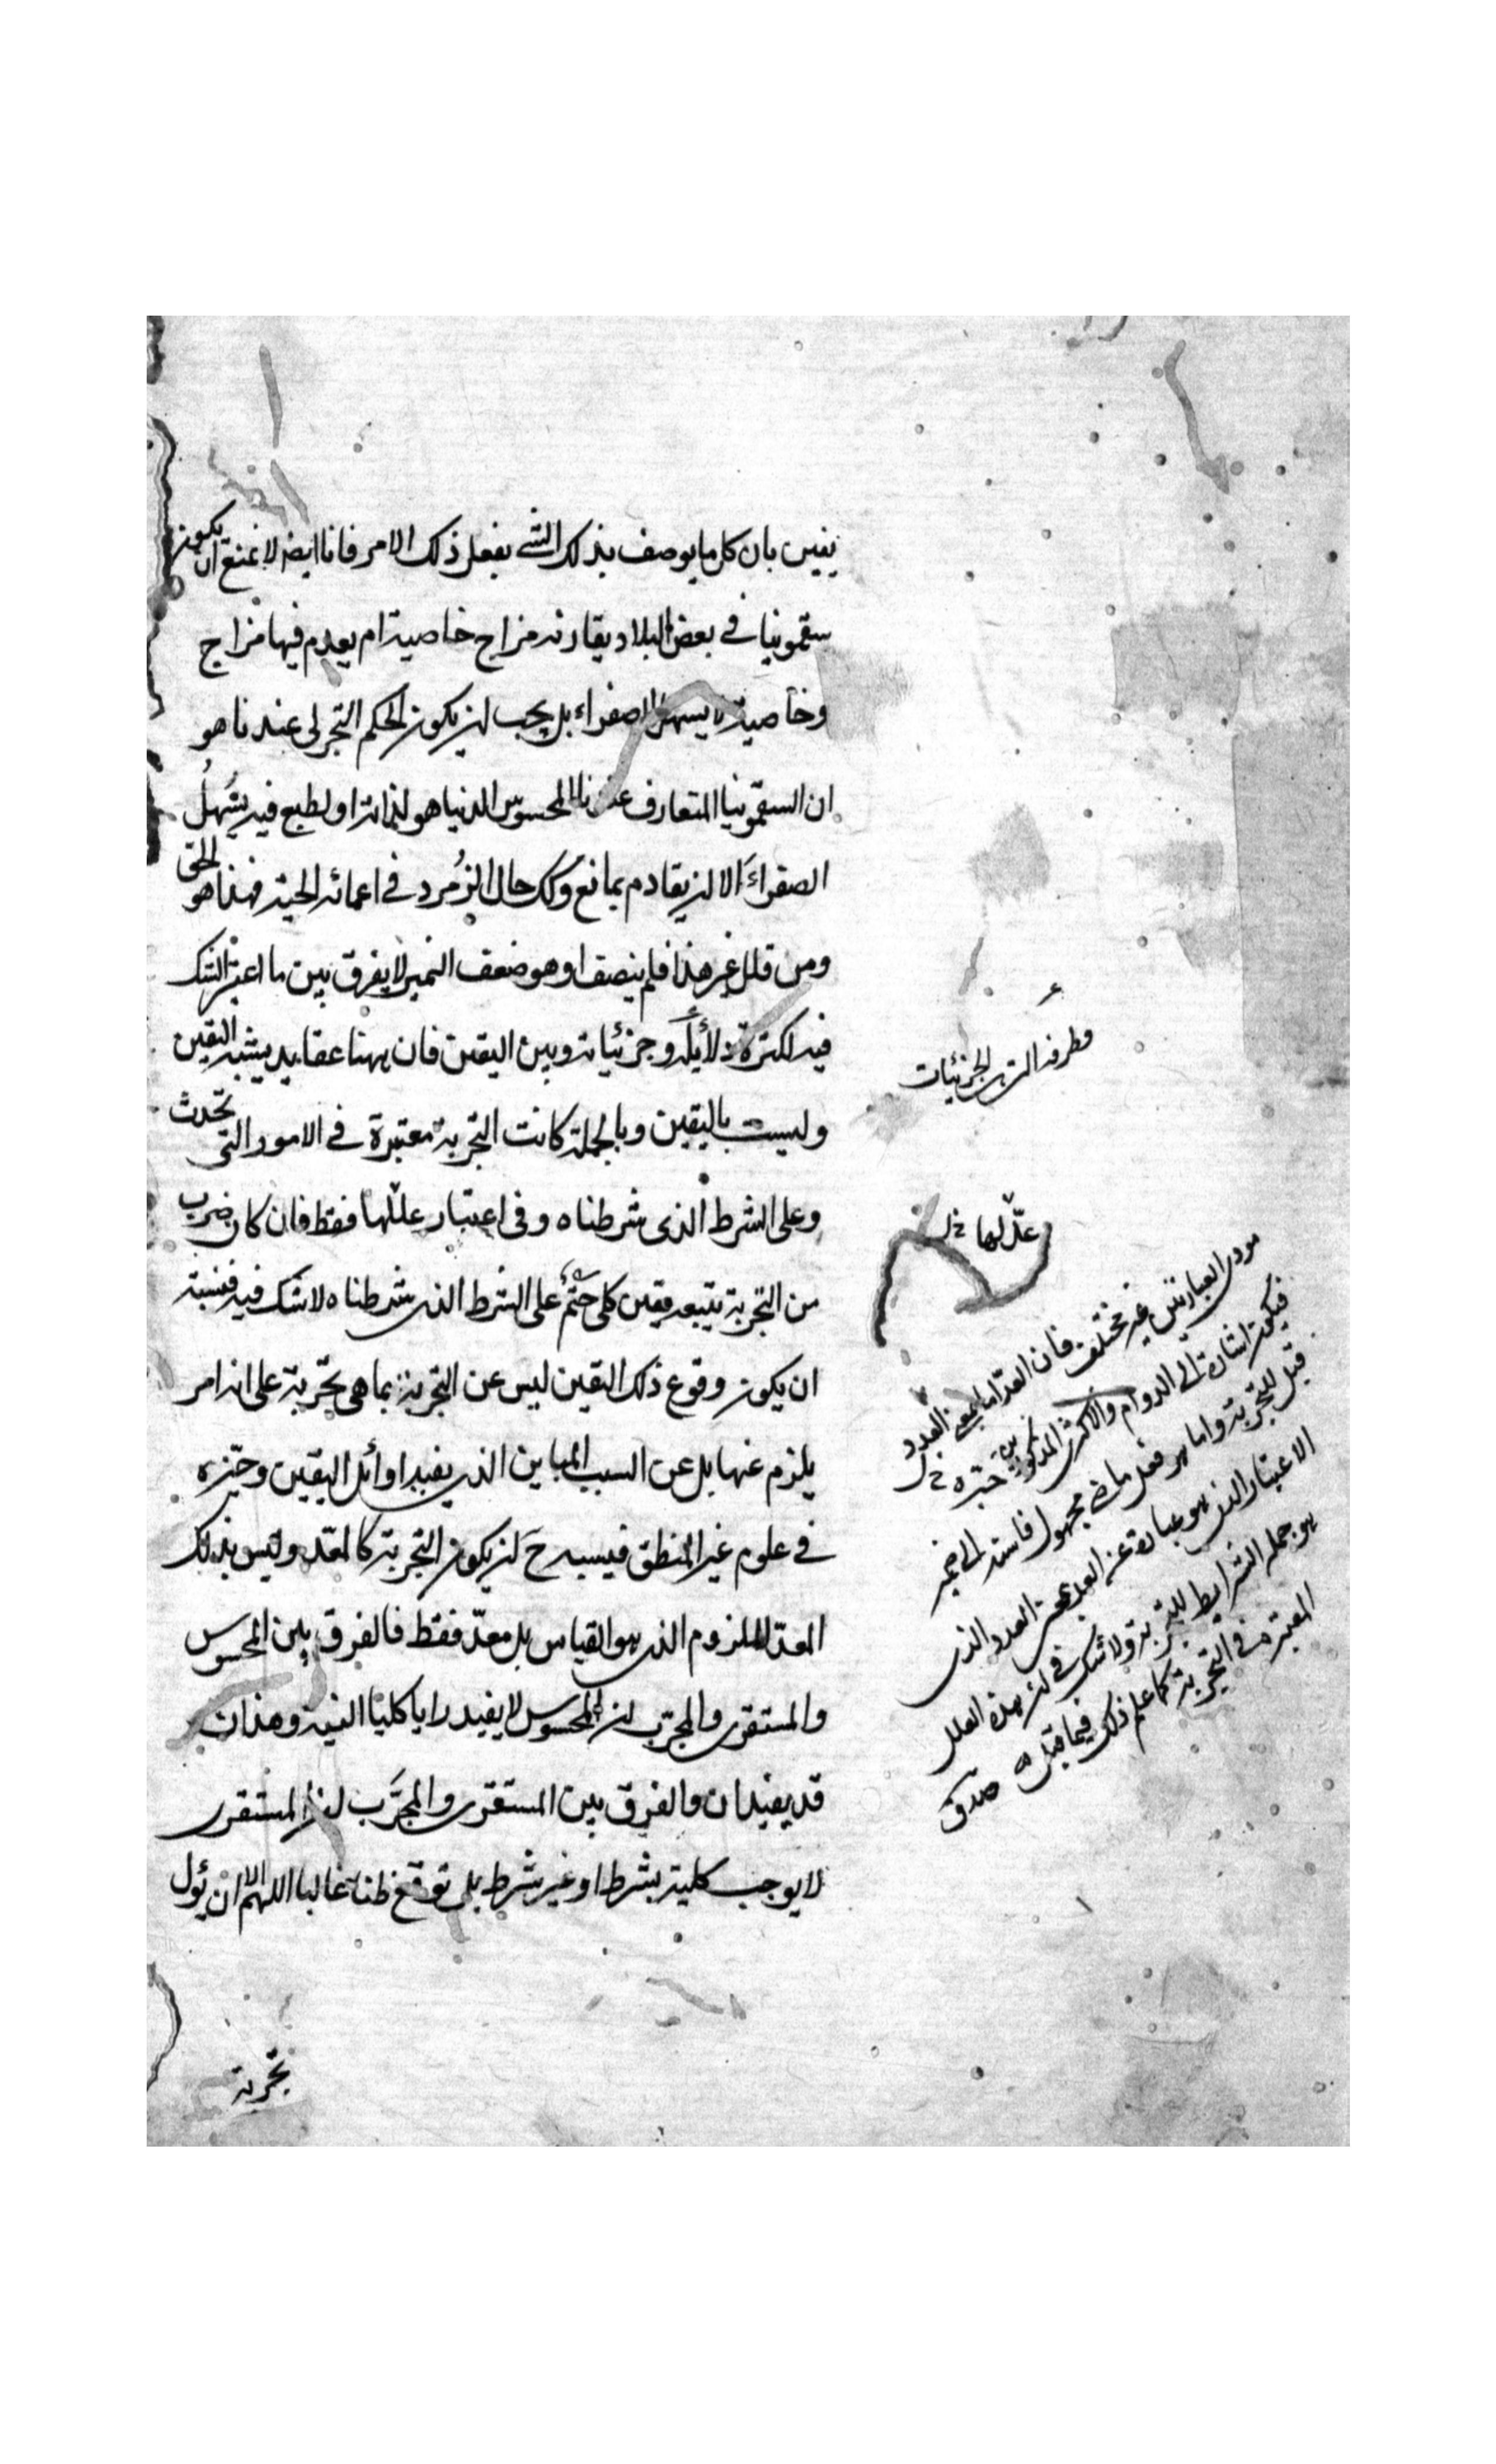 يقين بان كل ما يوصف بذلك الشئ يفعل ذلك الامر فانا ايضا لا نمنع ان يكون
سقمونيا في بعض البلاد يقارنه مزاج خاصية ام يعدم فيها مزاج
وخاصية لا يسهل الصفراء بل يجب ان يكون الحكم التجربى عندنا هو
ان السقمونيا المتعارف عندنا المحسوس لدينا هو لذاته او لطبع فيه يُسْهِلُ
الصفراءَ الا ان يقاوم بمانع وكك حال الزُمرد في اعمائه الحية فهذا هو الحق
ومن قال غير هذا فلم ينصف او هو ضعف التميز لا يفرق بين ما اعتبر الشك
فيه لكثرة دلائله وجزئياته وبين اليقين فان ههنا عقايد يشبه اليقين
وليست باليقين وبالجملة كانت التجربة معتبرة في الامور التى تحدث
وعلى الشرط الذى شرطناه وفى اعتبار عللها فقط فان كان ضرب
من التجربة يتبعه يقين كلى حتم على الشرط الذى شرطناه لا شك فيه فنسبة
ان يكون وقوع ذلك اليقين ليس عن التجربة بما هى تجربة على انه امر
يلزم عنها بل عن السبب المباين الذى يفيد اوائل اليقين وحيّزه
في علوم غير المنطق فيسبه حَ ان يكون التجربة كالمعّد وليس بذلك
المعدّ الملزوم الذى هو القياس بل معدّ فقط فالفرق بين المحسوس
والمستقرى والمجرّب ان المحسوس لا يفيد رايا كليا البتة وهذان
قد يفيدان والفرق بين المستقرى والمجرَّب ان المستقرى
لا يوجب كلية بشرط او غير شرط بل توقع ظنا غالبا اللهم الا ان يئول
تجربة
الجزئيات
عدّلها خ ل
مودى العبارتين غير مختلف فان العدّ اما بمعنى العدد
فيكون اشارة الى الدوام والاكثرى المذكورين
حيّزه خ ل
قبل للتجربة واما هو فعل ماض مجهول فاسند الى ضمير
الاعتبار الذى هو عبارة عن العد بمعنى العدد الذى
هو جملة الشرايط للتجربة ولا شك في ان هذه العلل
المعتبرة في التجربة كما علم ذلك فيما قبل